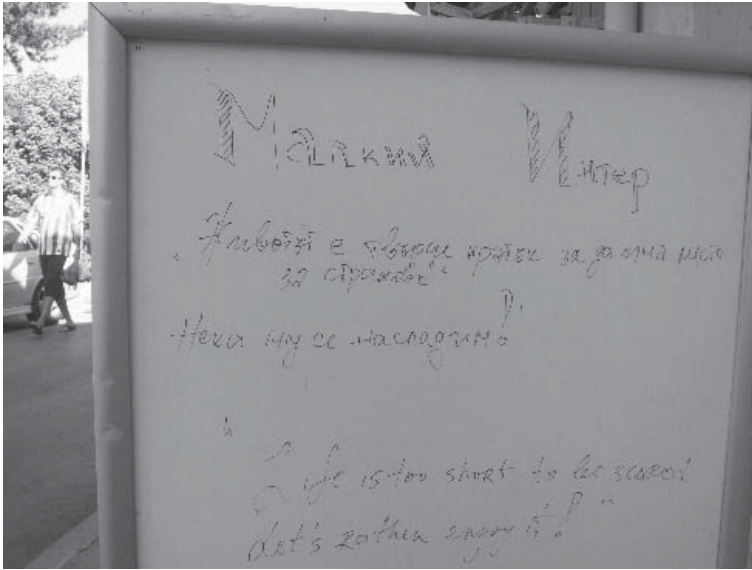 Малкия Интер
„Животът е твърде кратък за да има място
за страхове"
Нека му се насладим!
"Life is too short to be scared
Let's rather enjoy it!"